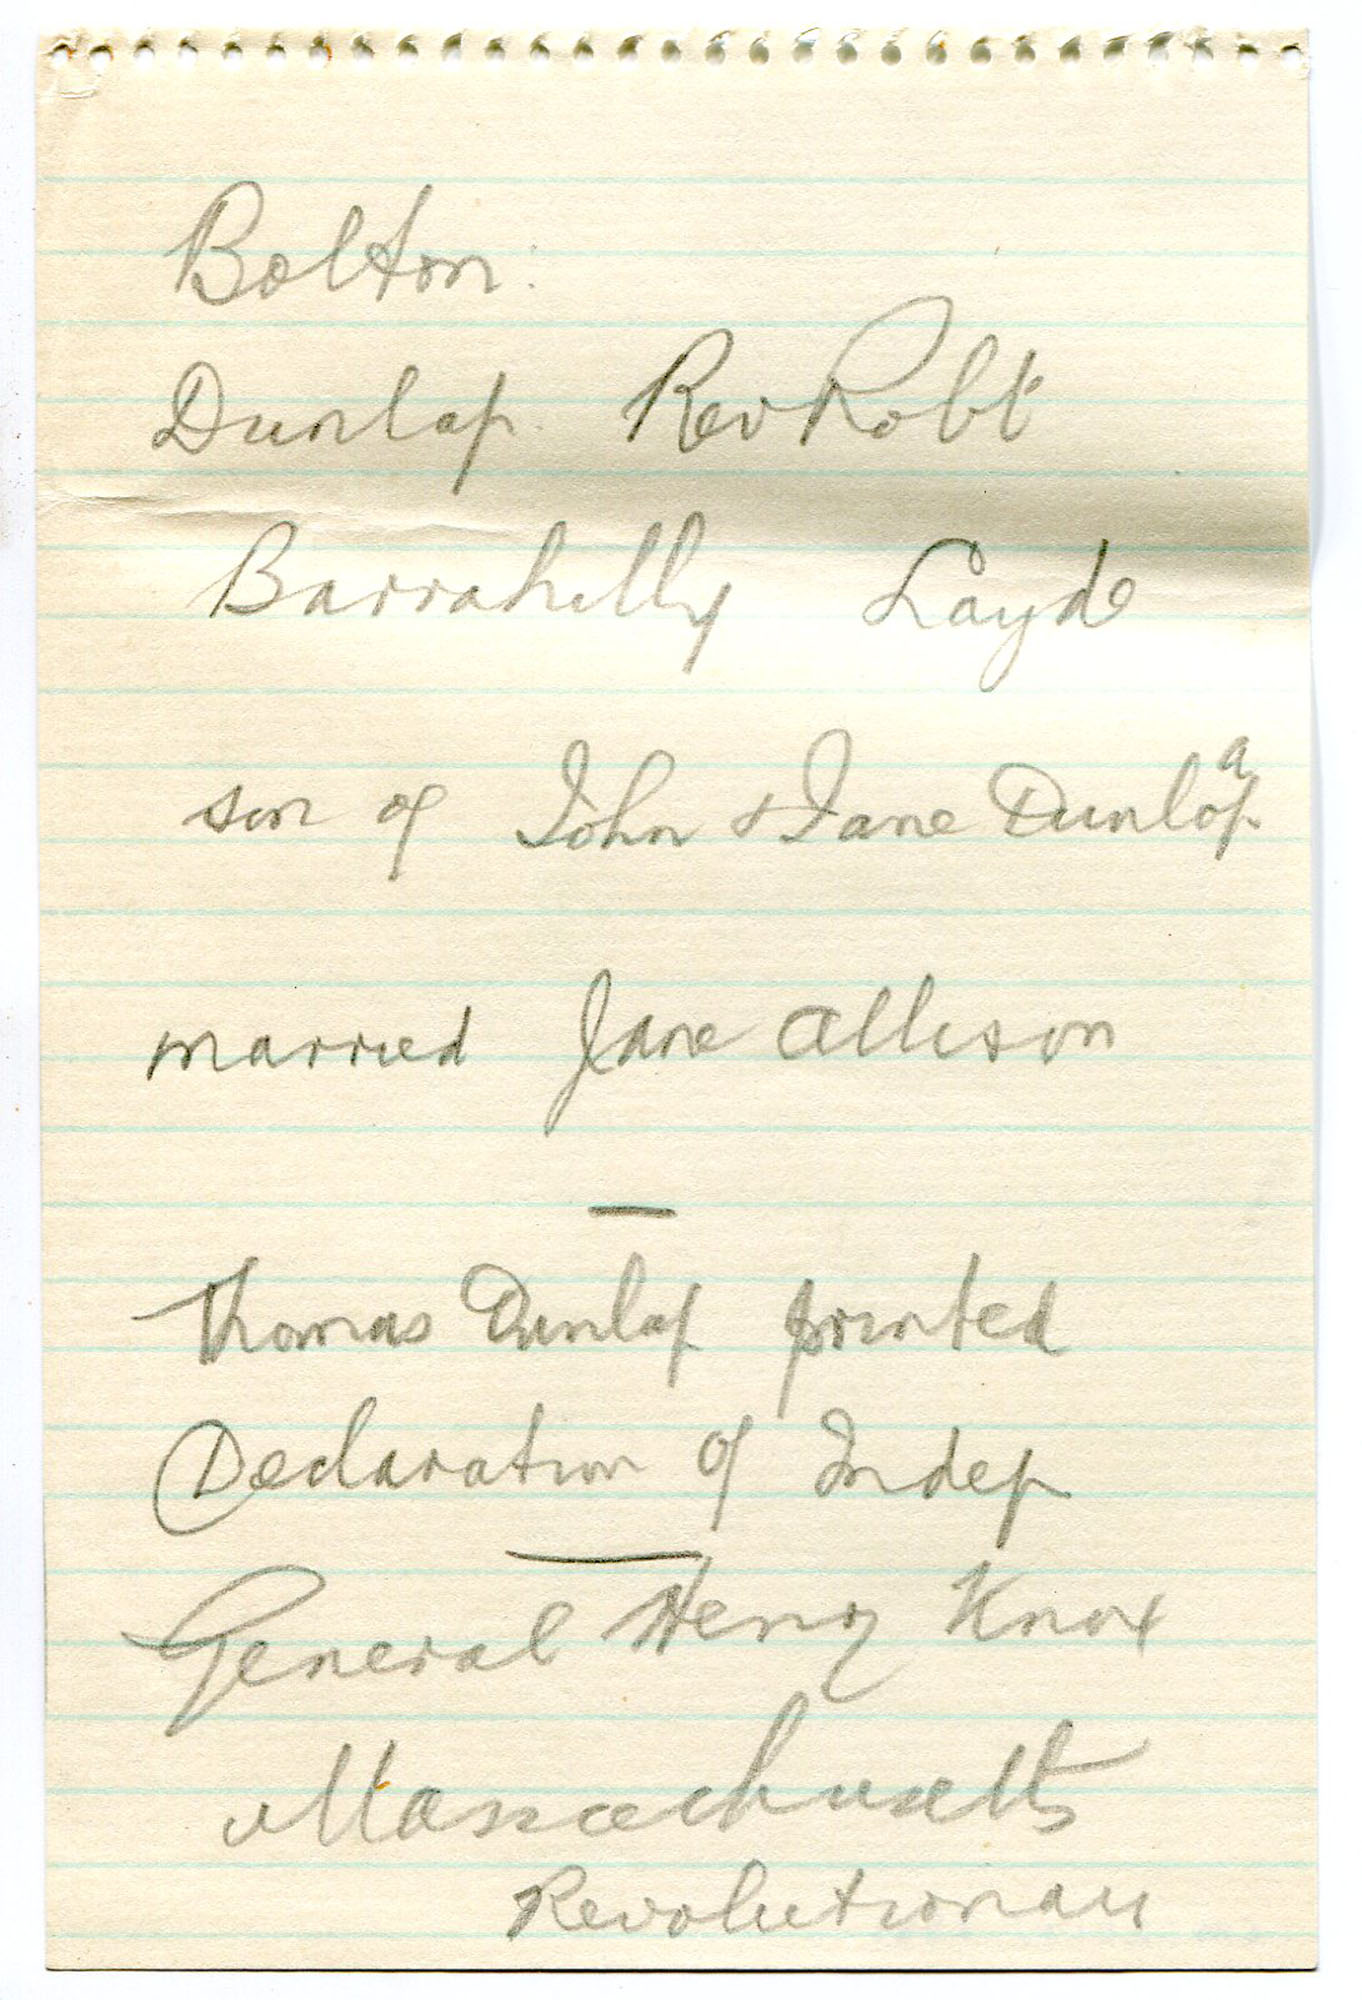 Bolton.
Dunlap. Rev Robt
Barrahilly Layde
son of John & Jane Dunlap
married Jane Allison
—
Thomas Dunlap printed
Declaration of Indep
—
General Henry Knox
Massachusetts
Revolutionary